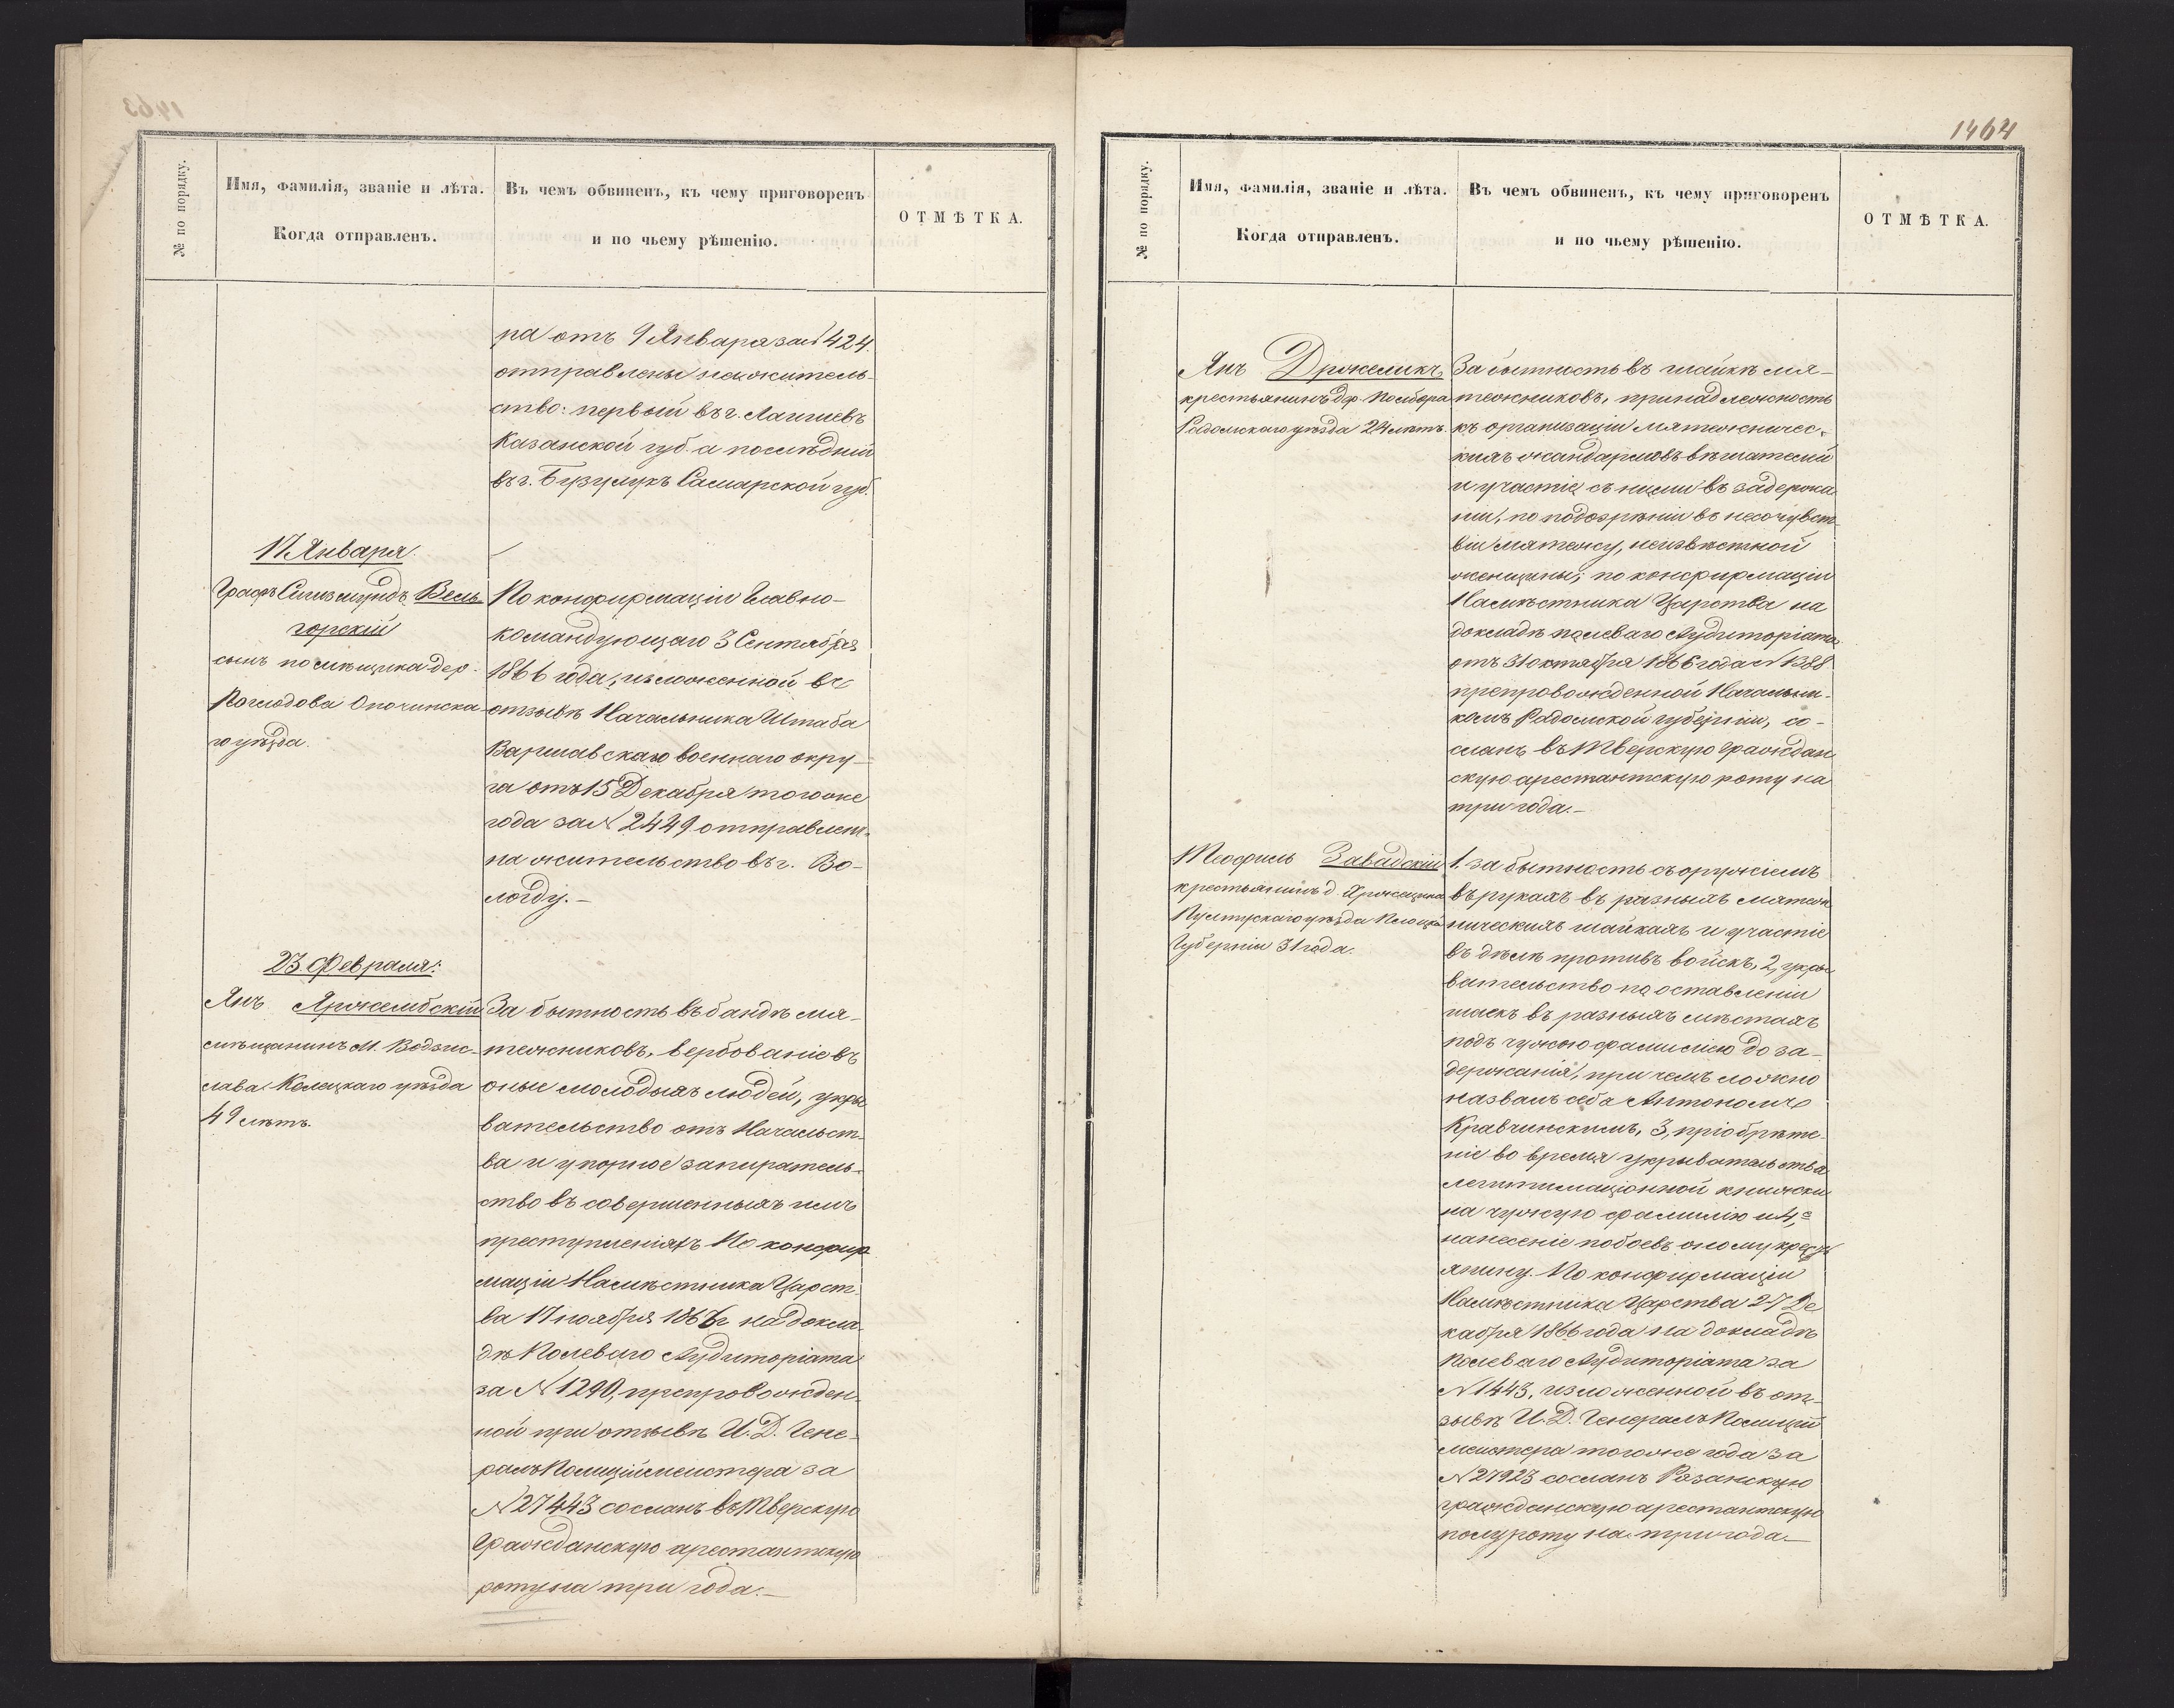 № по порядку.
Имя, фамилія, званіе и лѣта.
Когда отправленъ.
Въ чемъ обвиненъ, къ чему приговоренъ
и по чьему рѣшенію.
ОТМѢТКА.
ра отъ 9 Января за № 424
отправлены на житель-
ство: первый въ г. Лаишевъ
Казанской губ. а послѣдній
въ г. Бузулукъ Самарской губ.
17 Января.
Графъ Сигизмундъ Вель-
горскій
сынъ помѣщика дер.
Опочинска-
го уѣзда.
По конфирмаціи Главно-
командующаго 3 Сентября
1866 года, изложенной въ
отзывѣ Начальника Штаба
Варшавскаго военнаго окру-
га отъ 15 Декабря того же
года за № 2449 отправленъ
на жительство въ г. Во-
логду.-
23 Февраля:
Янъ Яржембскій
мѣщанинъ м. Водзис-
лава Келецкаго уѣзда
49 лѣтъ.
За бытность въ бандѣ мя-
тежниковъ, вербованіе въ
оные молодыхъ людей, укры
вательство отъ Начальст-
ва и упорное запиратель-
ство въ совершенныхъ имъ
преступленіяхъ По конфир
маціи Намѣстника Царст-
ва 17 ноября 1866 г на докла-
дѣ Полеваго Аудиторіата
за № 1290, препровожден-
ной при отзывѣ И. Д. Гене-
ралъ Полиціймейстера за
№ 27443 сосланъ въ Тверскую
Гражданскую арестантскую
роту на три года.-
1464
№ по порядку.
Имя, фамилія, званіе и лѣта.
Когда отправленъ.
Въ чемъ обвиненъ, къ чему приговоренъ
и по чьему рѣшенію.
ОТМѢТКА.
Янъ Држемикъ
крестьянинъ
Радомскаго уѣзда 24 лѣтъ.
За бытность въ шайкѣ мя-
тежниковъ, принадлежность
къ организаціи мятежничес-
кихъ жандармовъ вѣшателей
и участіе съ ними въ задержа
ніи, по подозрѣнію въ несочувст-
віи мятежу, неизвѣстной
женщины; по конфирмаціи
Намѣстника Царства на
докладѣ полеваго Аудиторіата
отъ 31 октября 1866 года № 1388
препровожденной Начальни-
комъ Радомской губерніи, со-
сланъ въ Тверскую граждан
скую арестантскую роту на
три года.-
Теофиль Завадскій
крестьянинъ д
Пултускаго уѣзда Плоцкой
Губерніи 31 года.
1. за бытность съ оружіемъ
въ рукахъ въ разныхъ мятеж
ническихъ шайкахъ и участіе
въ дѣлѣ противъ войскъ, 2, укры
вательство по оставленіи
шаекъ въ разныхъ мѣстахъ
подъ чужою фамиліею до за-
держанія, при чемъ ложно
назвалъ себя Антономъ
Кравчинскимъ, 3, пріобрѣте-
ніе во время укрывательства
легитимаціонной книжки
на чужую фамилію и 4,е
нанесеніе побоевъ оному кресть
янину. По конфирмаціи
Намѣстника Царства 27 Де
кабря 1866 года на докладѣ
Полеваго Аудиторіата за
№ 1443, изложенной въ от-
зывѣ И. Д. Генералъ Полицій
мейстера того же года за
№ 27923 сосланъ Рязанскую
гражданскую арестантскую
полуроту на три года.-